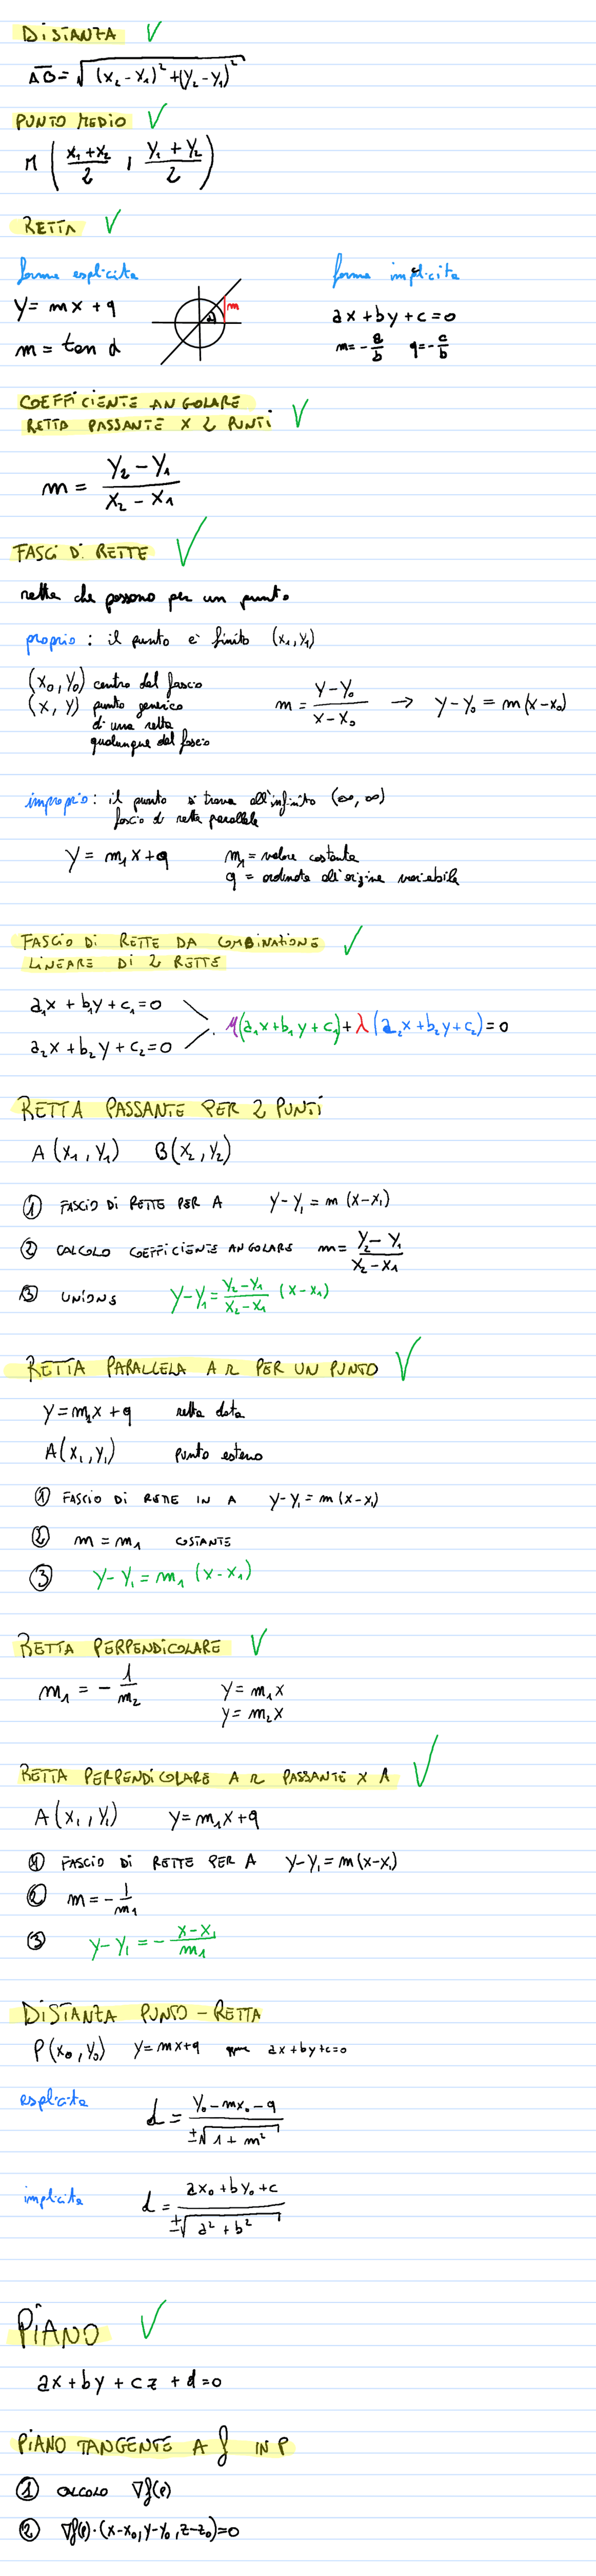 DISTANZA ✓
AB = √(x₂ - x₁)² + (y₂ - y₁)²
PUNTO MEDIO ✓
M ( (x₁ + x₂)/2 , (y₁ + y₂)/2 )
RETTA ✓
forma esplicita
forma implicita
y = mx + q
m
α
ax + by + c = 0
m = tan α
m = - a/b q = - c/b
COEFFICIENTE ANGOLARE
RETTA PASSANTE X 2 PUNTI ✓
m = (y₂ - y₁)/(x₂ - x₁)
FASCI DI RETTE ✓
rette che passano per un punto
proprio : il punto è finito (x₁, y₁)
(x₀, y₀) centro del fascio
(x, y) punto generico
di una retta
qualunque del fascio
m = (y - y₀)/(x - x₀) → y - y₀ = m(x - x₀)
improprio : il punto si trova all'infinito (∞, ∞)
fascio di rette parallele
y = m₁x + q
m₁ = valore costante
q = ordinata all'origine variabile
FASCIO DI RETTE DA COMBINAZIONE ✓
LINEARE DI 2 RETTE
a₁x + b₁y + c₁ = 0
μ(a₁x + b₁y + c₁) + λ(a₂x + b₂y + c₂) = 0
a₂x + b₂y + c₂ = 0
RETTA PASSANTE PER 2 PUNTI
A(x₁, y₁) B(x₂, y₂)
① FASCIO DI RETTE PER A y - y₁ = m(x - x₁)
② CALCOLO COEFFICIENTE ANGOLARE m = (y₂ - y₁)/(x₂ - x₁)
③ UNIONE y - y₁ = (y₂ - y₁)/(x₂ - x₁) (x - x₁)
RETTA PARALLELA A r PER UN PUNTO ✓
y = m₁x + q retta data
A(x₁, y₁) punto esterno
① FASCIO DI RETTE IN A y - y₁ = m(x - x₁)
② m = m₁ COSTANTE
③ y - y₁ = m₁(x - x₁)
RETTA PERPENDICOLARE ✓
m₁ = - 1/m₂
y = m₁x
y = m₂x
RETTA PERPENDICOLARE A r PASSANTE X A ✓
A(x₁, y₁) y = m₁x + q
① FASCIO DI RETTE PER A y - y₁ = m(x - x₁)
② m = - 1/m₁
③ y - y₁ = - (x - x₁)/m₁
DISTANZA PUNTO - RETTA
P(x₀, y₀) y = mx + q ax + by + c = 0
esplicita
d = (y₀ - mx₀ - q)/(±√(1 + m²))
implicita
d = (ax₀ + by₀ + c)/(±√(a² + b²))
PIANO ✓
ax + by + cz + d = 0
PIANO TANGENTE A f IN P
① CALCOLO ∇f(P)
② ∇f(P)·(x - x₀, y - y₀, z - z₀) = 0